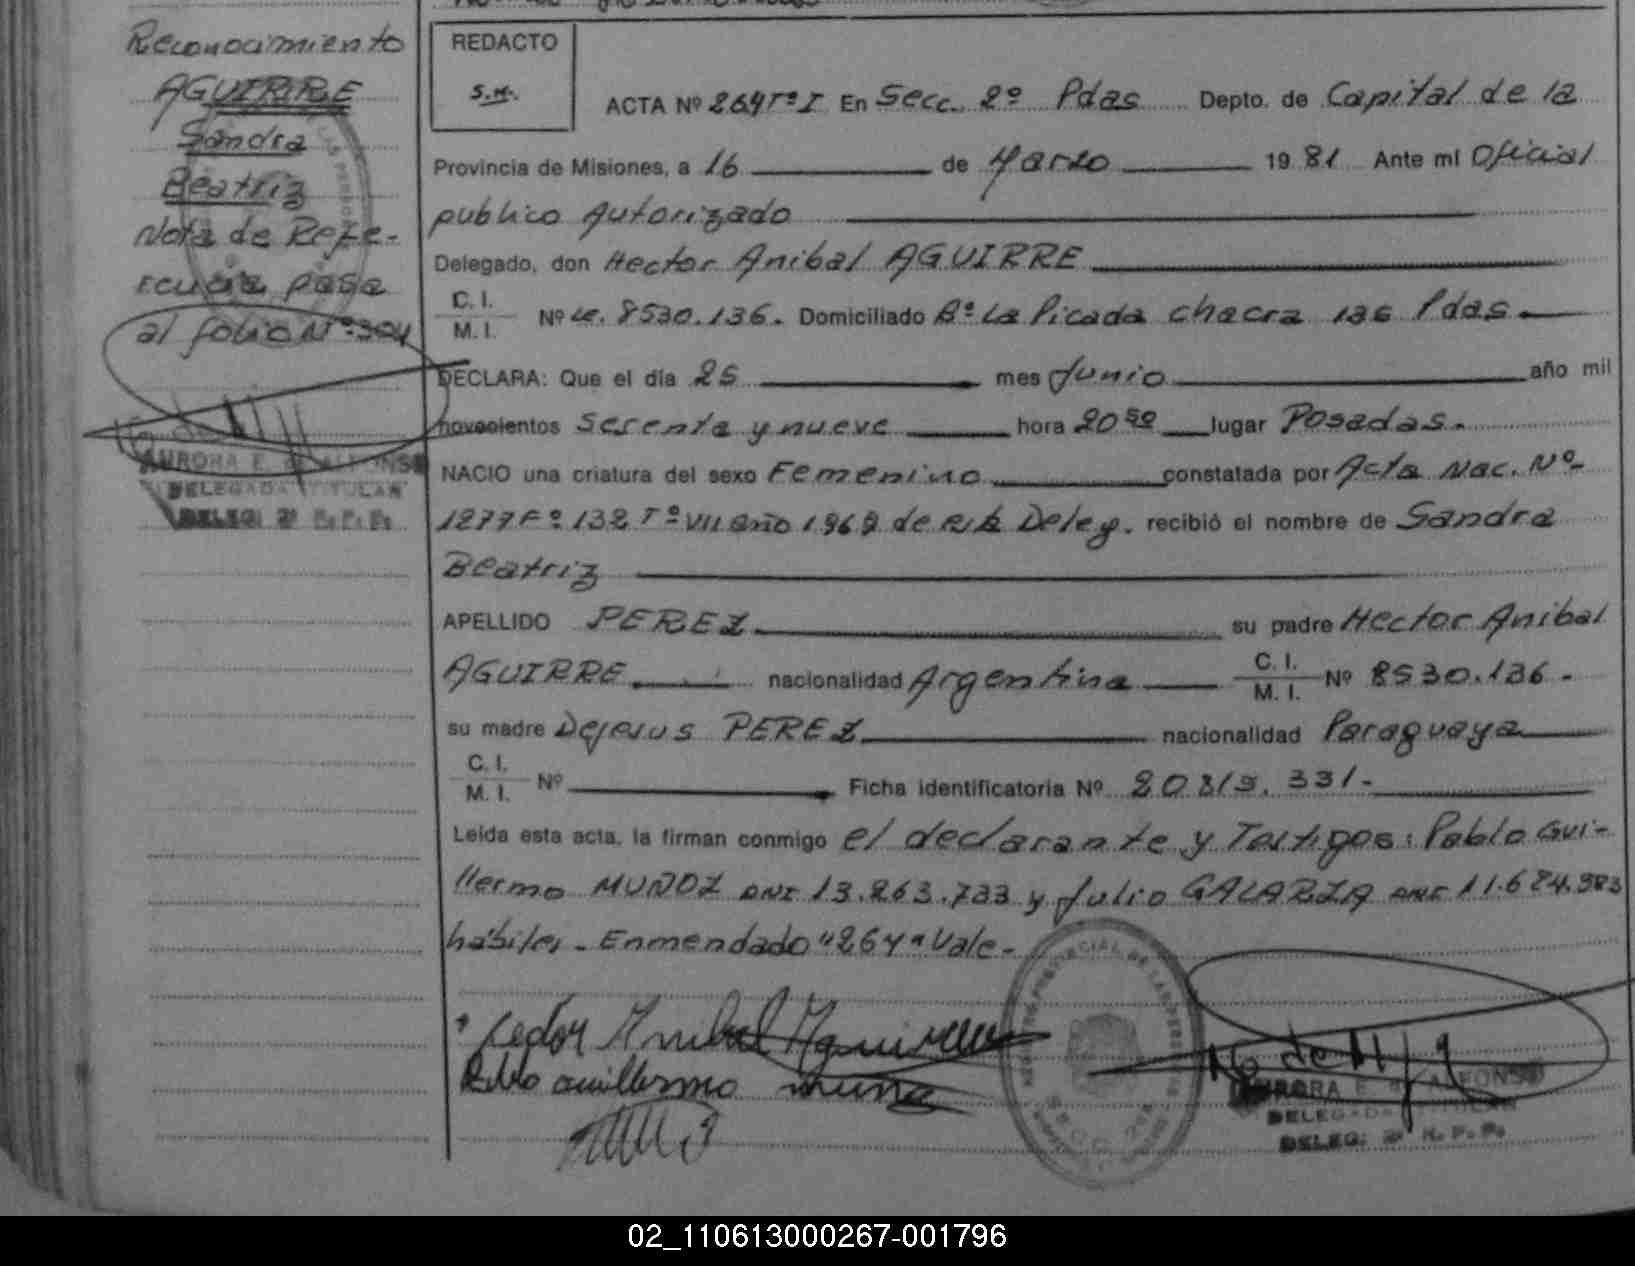 Reconocimiento
AGUIRRE
Sandra
Beatriz
Nota de Refe-
rencia pasa
al folio Nº 304
AURORA E. de ALFONSO
DELEGADA TITULAR
DELEG. 2ª R. P. P.
REDACTO
S.M.
ACTA Nº 264 Tº I En Secc. 2º Pdas Depto. de Capital de la
Provincia de Misiones, a 16 de Marzo 19 81 Ante mí Oficial
publico Autorizado
Delegado, don Hector Anibal AGUIRRE
C. I.
M. I. Nº Le. 8530.136. Domiciliado Bº La Picada chacra 136 Pdas.
DECLARA: Que el día 25 mes Junio año mil
novecientos Sesenta y nueve hora 20 lugar Posadas.
NACIO una criatura del sexo Femenino constatada por Acta Nac. Nº
1277 Fº 132 Tº VII año 1969 de Deleg. recibió el nombre de Sandra
Beatriz
APELLIDO PEREZ su padre Hector Anibal
AGUIRRE nacionalidad Argentina C. I. M. I. Nº 8530.136.
su madre Dejesus PEREZ nacionalidad Paraguaya
C. I.
M. I. Nº Ficha identificatoria Nº
Leída esta acta, la firman conmigo el declarante y Testigos: Pablo Gui-
llermo MUÑOZ DNI 13.263.733 y Julio GALARZA DNI 11.624.983
hábiles - Enmendado "264" Vale -
Hector Anibal Aguirre
Pablo Guillermo
AURORA E. de ALFONSO
DELEGADA TITULAR
DELEG. 2ª R. P. P.
02_110613000267-001796